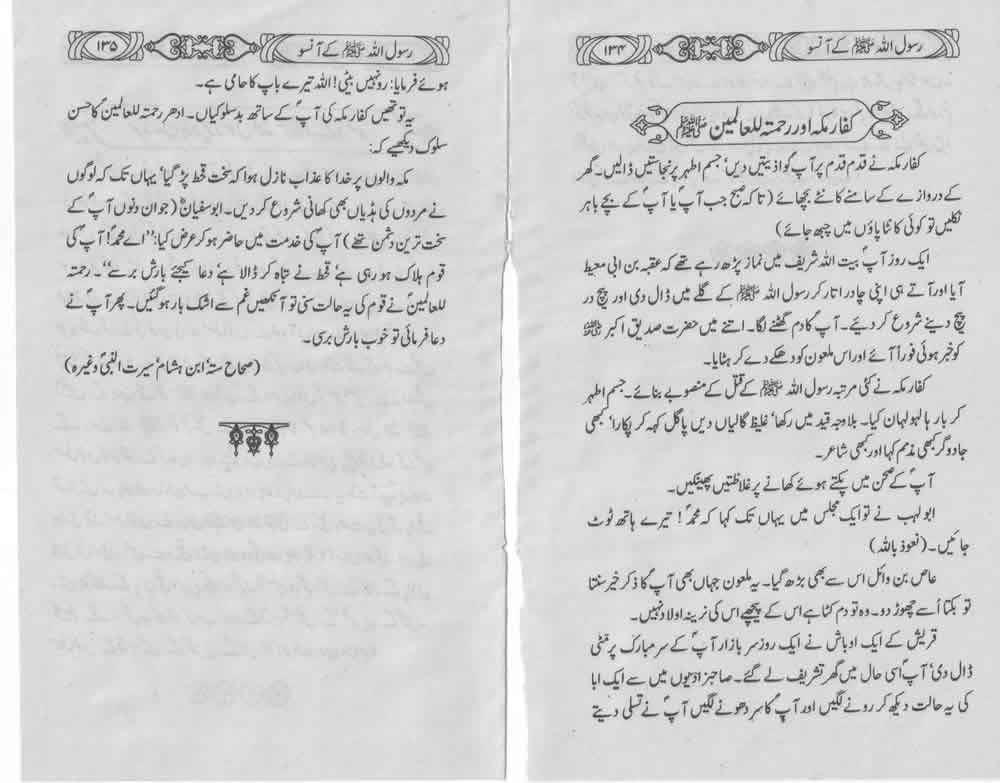 رسول اللہ ﷺ کے آنسو
۱۳۴
کفار مکہ اور رحمتہ للعالمین ﷺ
کفار مکہ نے قدم قدم پر آپؐ کو اذیتیں دیں، جسم اطہر پر نجاستیں ڈالیں۔ گھر
کے دروازے کے سامنے کانٹے بچھائے (تاکہ صبح جب آپؐ یا آپؐ کے بچے باہر
نکلیں تو کوئی کانٹا پاؤں میں چبھ جائے)
ایک روز آپؐ بیت اللہ شریف میں نماز پڑھ رہے تھے کہ عقبہ بن ابی معیط
آیا اور آتے ہی اپنی چادر اتار کر رسول اللہ ﷺ کے گلے میں ڈال دی اور پیچ در
پیچ دینے شروع کر دیئے۔ آپؐ کا دم گھٹنے لگا۔ اتنے میں حضرت صدیق اکبر ؓ
کو خبر ہوئی فوراً آئے اور اس ملعون کو دھکے دے کر ہٹایا۔
کفار مکہ نے کئی مرتبہ رسول اللہ ﷺ کے قتل کے منصوبے بنائے۔ جسم اطہر
کر بارہا لہولہان کیا۔ بلاوجہ قید میں رکھا، غلیظ گالیاں دیں پاگل کہہ کر پکارا، کبھی
جادوگر کبھی مذمم کہا اور کبھی شاعر۔
آپؐ کے صحن میں پکتے ہوئے کھانے پر غلاظتیں پھینکیں۔
ابولہب نے تو ایک مجلس میں یہاں تک کہا کہ محمدؐ! تیرے ہاتھ ٹوٹ
جائیں۔ (نعوذ باللہ)
عاص بن وائل اس سے بھی بڑھ گیا۔ یہ ملعون جہاں بھی آپؐ کا ذکر خیر سنتا
تو بکتا اُسے چھوڑ دو۔ وہ تو دم کٹا ہے اس کے پیچھے اس کی نرینہ اولاد نہیں۔
قریش کے ایک اوباش نے ایک روز سر بازار آپؐ کے سر مبارک پر مٹی
ڈال دی، آپؐ اسی حال میں گھر تشریف لے گئے۔ صاحبزادیوں میں سے ایک ابا
کی یہ حالت دیکھ کر رونے لگیں اور آپؐ کا سر دھونے لگیں آپؐ نے تسلی دیتے
رسول اللہ ﷺ کے آنسو
۱۳۵
ہوئے فرمایا: رو نہیں بیٹی! اللہ تیرے باپ کا حامی ہے۔
یہ تو تھیں کفار مکہ کی آپؐ کے ساتھ بدسلوکیاں۔ ادھر رحمتہ للعالمین کا حسن
سلوک دیکھیے کہ:
مکہ والوں پر خدا کا عذاب نازل ہوا کہ سخت قحط پڑ گیا، یہاں تک کہ لوگوں
نے مردوں کی ہڈیاں بھی کھانی شروع کر دیں۔ ابوسفیانؓ (جو ان دنوں آپؐ کے
سخت ترین دشمن تھے) آپؐ کی خدمت میں حاضر ہو کر عرض کیا: ’’اے محمدؐ! آپ کی
قوم ہلاک ہو رہی ہے، قحط نے تباہ کر ڈالا ہے، دعا کیجئے بارش برسے‘‘۔ رحمتہ
للعالمینؐ نے قوم کی یہ حالت سنی تو آنکھیں غم سے اشک بار ہو گئیں۔ پھر آپؐ نے
دعا فرمائی تو خوب بارش برسی۔
(صحاح ستہ، ابن ہشام، سیرت النبیؐ وغیرہ)